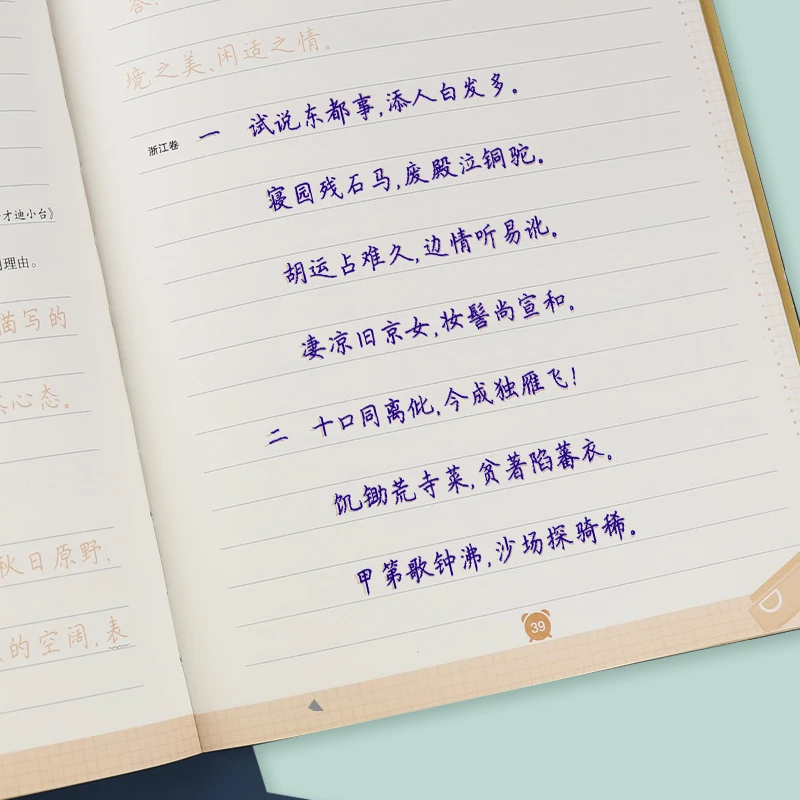 才迪小台》
理由。
苗写的
心态。
秋日原野,
的空阔,表
境之美、闲适之情。
浙江卷
一 试说东都事,添人白发多。
寝园残石马,废殿泣铜驼。
胡运占难久,边情听易讹。
凄凉旧京女,妆髻尚宣和。
二 十口同离仳,今成独雁飞!
饥锄荒寺菜,贫著陷蕃衣。
甲第歌钟沸,沙场探骑稀。
39